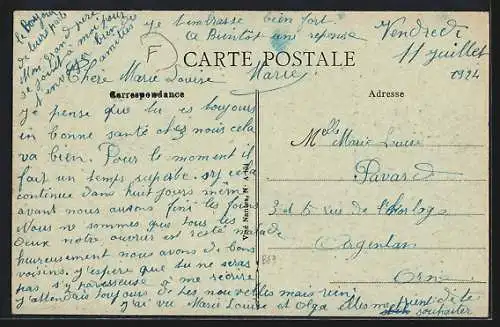 je t'embrasse bien fort
A Bientôt une reponse
Marie
Vendredi
11 juillet
1924
le Bonjour
de leurs part
Mon grand père
se joint à moi pour
t'envoyer Bien des
amitiés
F
CARTE POSTALE
Correspondance
Adresse
Chère Marie Louise
je pense que tu es toujours
en bonne santé chez nous cela
va bien. Pour le moment il
fait un temps superbe si cela
continue dans huit jours même
avant nous aurons fini les foins
Nous ne sommes que tous les
deux notre ouvrier est resté malade
heureusement nous avons de bons
voisins. j'espère que tu ne seras
pas si paresseuse de me récrire
j'attendais toujours de tes nouvelles mais rien
j'ai vu Marie Louise et Olga elles me prient de te
souhaiter
Melle Marie Louise
Pavard
3 et 5 rue de l'horloge
Argentan
Orne